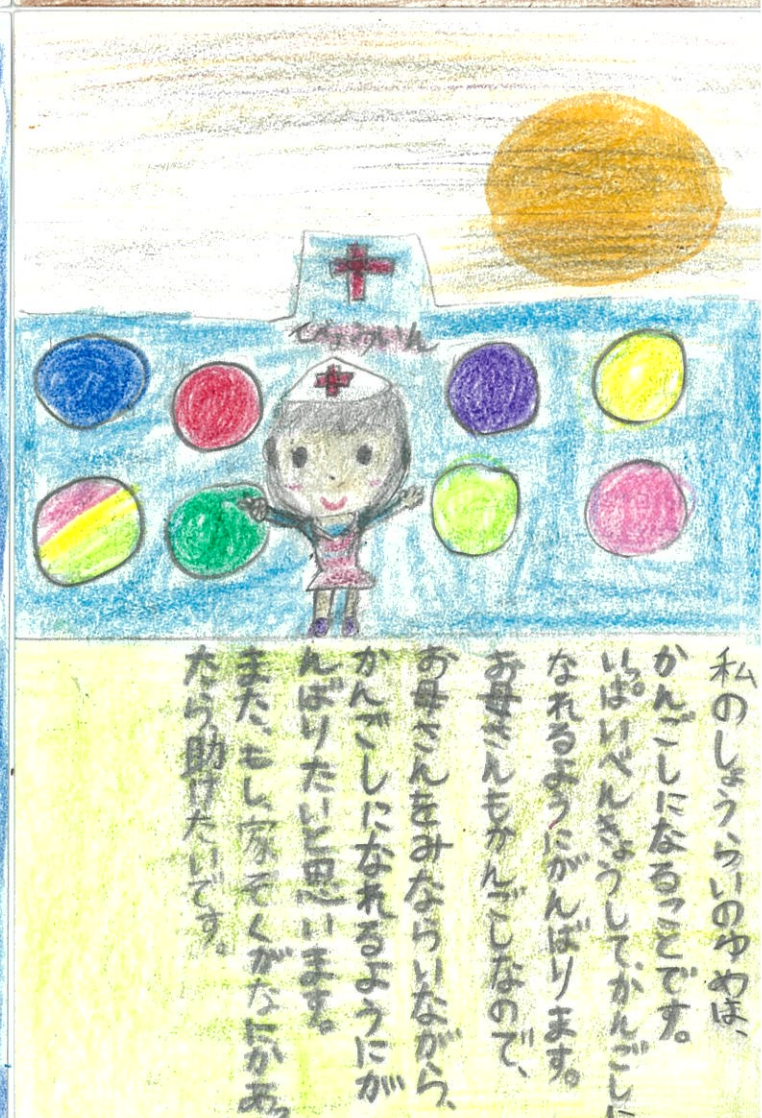 びょういん
私のしょうらいのゆめは、
かんごしになることです。
いっぱいべんきょうしてかんごしに
なれるようにがんばります。
お母さんもかんごしなので、
お母さんをみならいながら、
かんごしになれるようにが
んばりたいと思います。
また、もし家ぞくがなにかあっ
たら助けたいです。